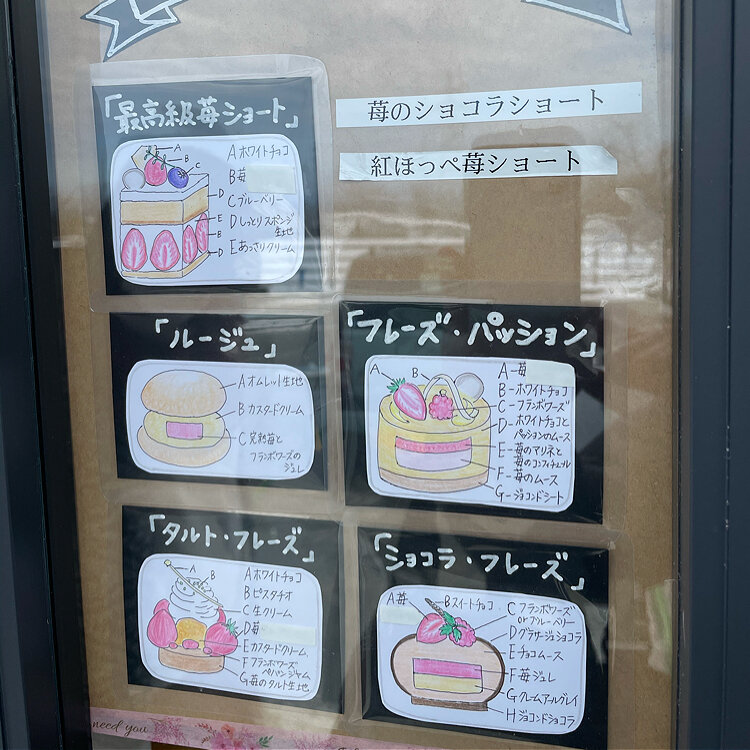 「最高級苺ショート」
A ホワイトチョコ
B 苺
C ブルーベリー
D しっとりスポンジ
生地
E あっさりクリーム
A
B
C
D
E
B
D
苺のショコラショート
紅ほっぺ苺ショート
「ルージュ」
A オムレット生地
B カスタードクリーム
C 完熟苺と
フランボワーズの
ジュレ
「フレーズ・パッション」
A
B
A-苺
B-ホワイトチョコ
C-フランボワーズ
D-ホワイトチョコと
パッションのムース
E-苺のマリネと
苺のコンフィチュール
F-苺のムース
G-ジョコンドシート
「タルト・フレーズ」
A
B
A ホワイトチョコ
B ピスタチオ
C 生クリーム
D 苺
E カスタードクリーム
F フランボワーズ
ペパンジャム
G 苺のタルト生地
「ショコラ・フレーズ」
A 苺
B スイートチョコ
C フランボワーズ
orブルーベリー
D グラサージュショコラ
E チョコムース
F 苺ジュレ
G クレームアールグレイ
H ジョコンドショコラ
need you